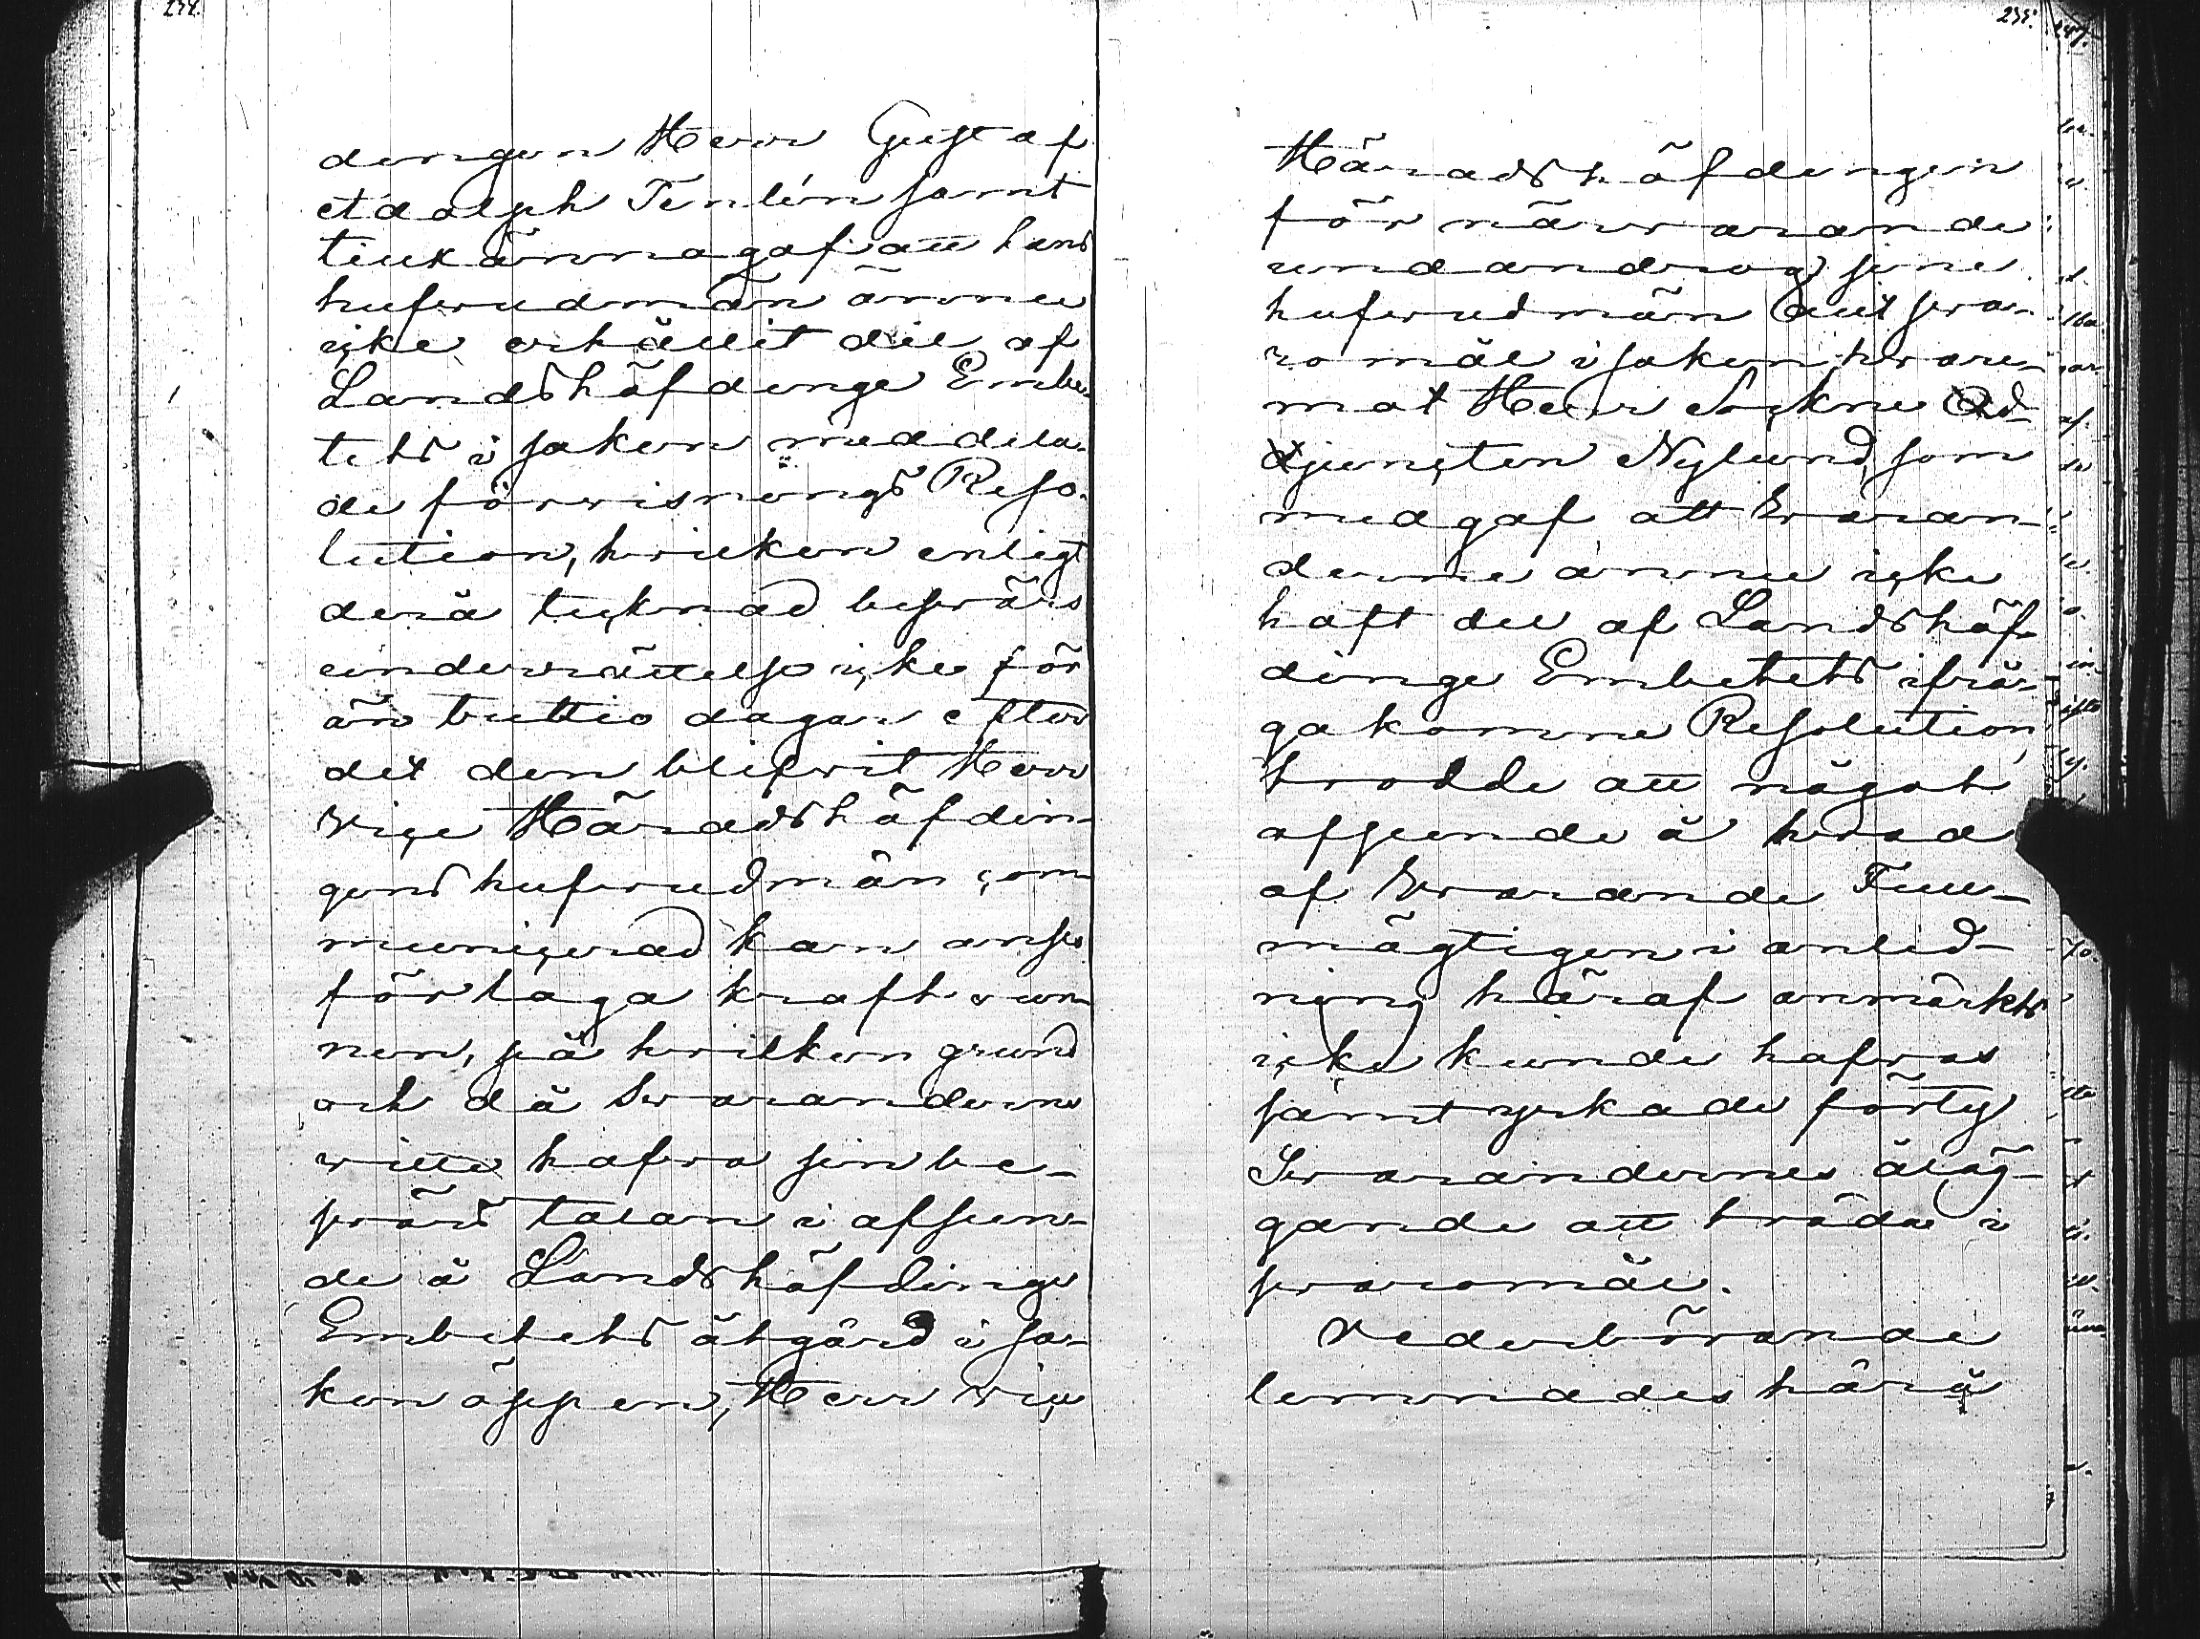 234.
dingen Herr Gustaf
Adolph Tenlén samt
tillkännagaf att hans
hufvudmän ännu
icke erhållit del af
Landshöfdinge Embe-
tets i saken meddela-
de förvisnings Reso-
lution, hvilken enligt
derå tecknad besvärs
undervisning icke för
än trettio dagar efter
det den blifvit Herr
Vice Häradshöfdin-
gens hufvudmän com-
municerad kan anses
för laga kraft vun-
nen, på hvilken grund
och då Svaranderne
ville hafva sin be-
svärs talan i afseen-
de å Landshöfdinge
Embetets åtgärd i sa-
ken öppen, Herr Vice
235.
Häradshöfdingen
för närvarande
undandrog sine
hufvudmän allt sva-
romål i saken hvare-
mot Herr Sockne Ad-
djuncten Nylund, som
medgaf att Svaran-
derne ännu icke
haft del af Landshöf-
dinge Embetets ifrå-
gakomne Resolution,
trodde att något
afseende å hvad
af Svarande Full-
mägtigen i anled-
ning häraf anmärkts
icke kunde hafvas
samt yrkade förty
Svarandernes åläg-
gande att träda i
svaromål.
Vederbörande
lemnades härå